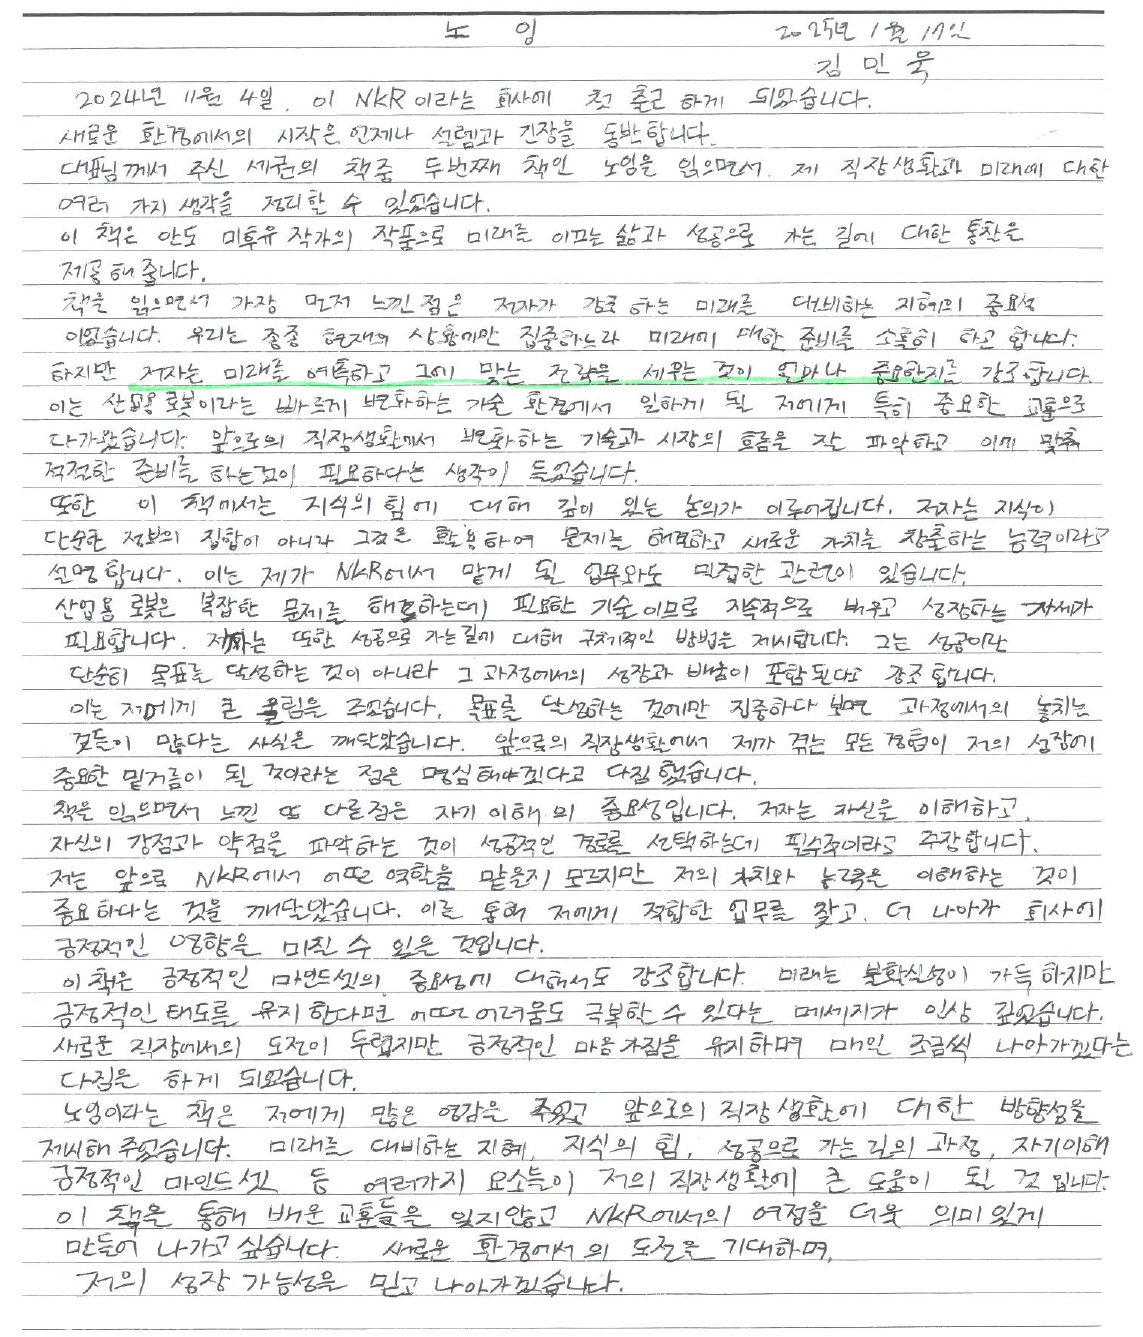 노 잉 2025년 1월 17일
김 민 욱
2024년 11월 4일, 이 NKR이라는 회사에 첫 출근 하게 되었습니다.
새로운 환경에서의 시작은 언제나 설렘과 긴장을 동반합니다.
대표님께서 주신 세권의 책중 두번째 책인 노잉을 읽으면서. 제 직장생활과 미래에 대한
여러 가지 생각을 정리할 수 있었습니다.
이 책은 안도 미후유 작가의 작품으로 미래를 이끄는 삶과 성공으로 가는 길에 대한 통찰을
제공해 줍니다.
책을 읽으면서 가장 먼저 느낀점은 저자가 강조 하는 미래를 대비하는 지혜의 중요성
이었습니다. 우리는 종종 현재의 상황에만 집중하느라 미래에 대한 준비를 소홀히 하고 합니다.
하지만 저자는 미래를 예측하고 그에 맞는 전략을 세우는 것이 얼마나 중요한지를 강조합니다.
이는 산업용 로봇이라는 빠르게 변화하는 기술 환경에서 일하게 될 저에게 특히 중요한 교훈으로
다가왔습니다. 앞으로의 직장생활에서 변화하는 기술과 시장의 흐름을 잘 파악하고 이에 맞춰
적절한 준비를 하는것이 필요하다는 생각이 들었습니다.
또한 이 책에서는 지식의 힘에 대해 깊이 있는 논의가 이루어집니다. 저자는 지식이
단순한 정보의 집합이 아니라 그것을 활용하여 문제를 해결하고 새로운 가치를 창출하는 능력이라고
설명합니다. 이는 제가 NKR에서 맡게 될 업무와도 밀접한 관련이 있습니다.
산업용 로봇은 복잡한 문제를 해결하는데 필요한 기술이므로 지속적으로 배우고 성장하는 자세가
필요합니다. 저자는 또한 성공으로 가는길에 대해 구체적인 방법을 제시합니다. 그는 성공이란
단순히 목표를 달성하는 것이 아니라 그 과정에서의 성장과 배움이 포함된다고 강조합니다.
이는 저에게 큰 울림을 주었습니다. 목표를 달성하는 것에만 집중하다 보면 과정에서의 놓치는
것들이 많다는 사실은 깨달았습니다. 앞으로의 직장생활에서 제가 겪는 모든 경험이 저의 성장에
중요한 밑거름이 될 것이라는 점은 명심해야겠다고 다짐 했습니다.
책을 읽으면서 느낀 또 다른점은 자기 이해의 중요성입니다. 저자는 자신을 이해하고,
자신의 강점과 약점을 파악하는 것이 성공적인 경로를 선택하는데 필수적이라고 주장합니다.
저는 앞으로 NKR에서 어떤 역할을 맡을지 모르지만 저의 가치와 능력은 이해하는 것이
중요하다는 것을 깨달았습니다. 이를 통해 저에게 적합한 업무를 찾고, 더 나아가 회사에
긍정적인 영향을 미칠 수 있을 것입니다.
이 책은 긍정적인 마인드셋의 중요성에 대해서도 강조합니다. 미래는 불확실성이 가득 하지만
긍정적인 태도를 유지한다면 어떤 어려움도 극복할 수 있다는 메세지가 인상 깊었습니다.
새로운 직장에서의 도전이 두렵지만 긍정적인 마음가짐을 유지하며 매일 조금씩 나아가겠다는
다짐을 하게 되었습니다.
노잉이라는 책은 저에게 많은 영감을 주었고 앞으로의 직장생활에 대한 방향성을
제시해 주었습니다. 미래를 대비하는 지혜, 지식의 힘, 성공으로 가는 길의 과정, 자기이해
긍정적인 마인드셋 등 여러가지 요소들이 저의 직장생활에 큰 도움이 될 것 입니다.
이 책을 통해 배운 교훈들을 잊지않고 NKR에서의 여정을 더욱 의미있게
만들어 나가고 싶습니다. 새로운 환경에서의 도전을 기대하며,
저의 성장 가능성을 믿고 나아가겠습니다.